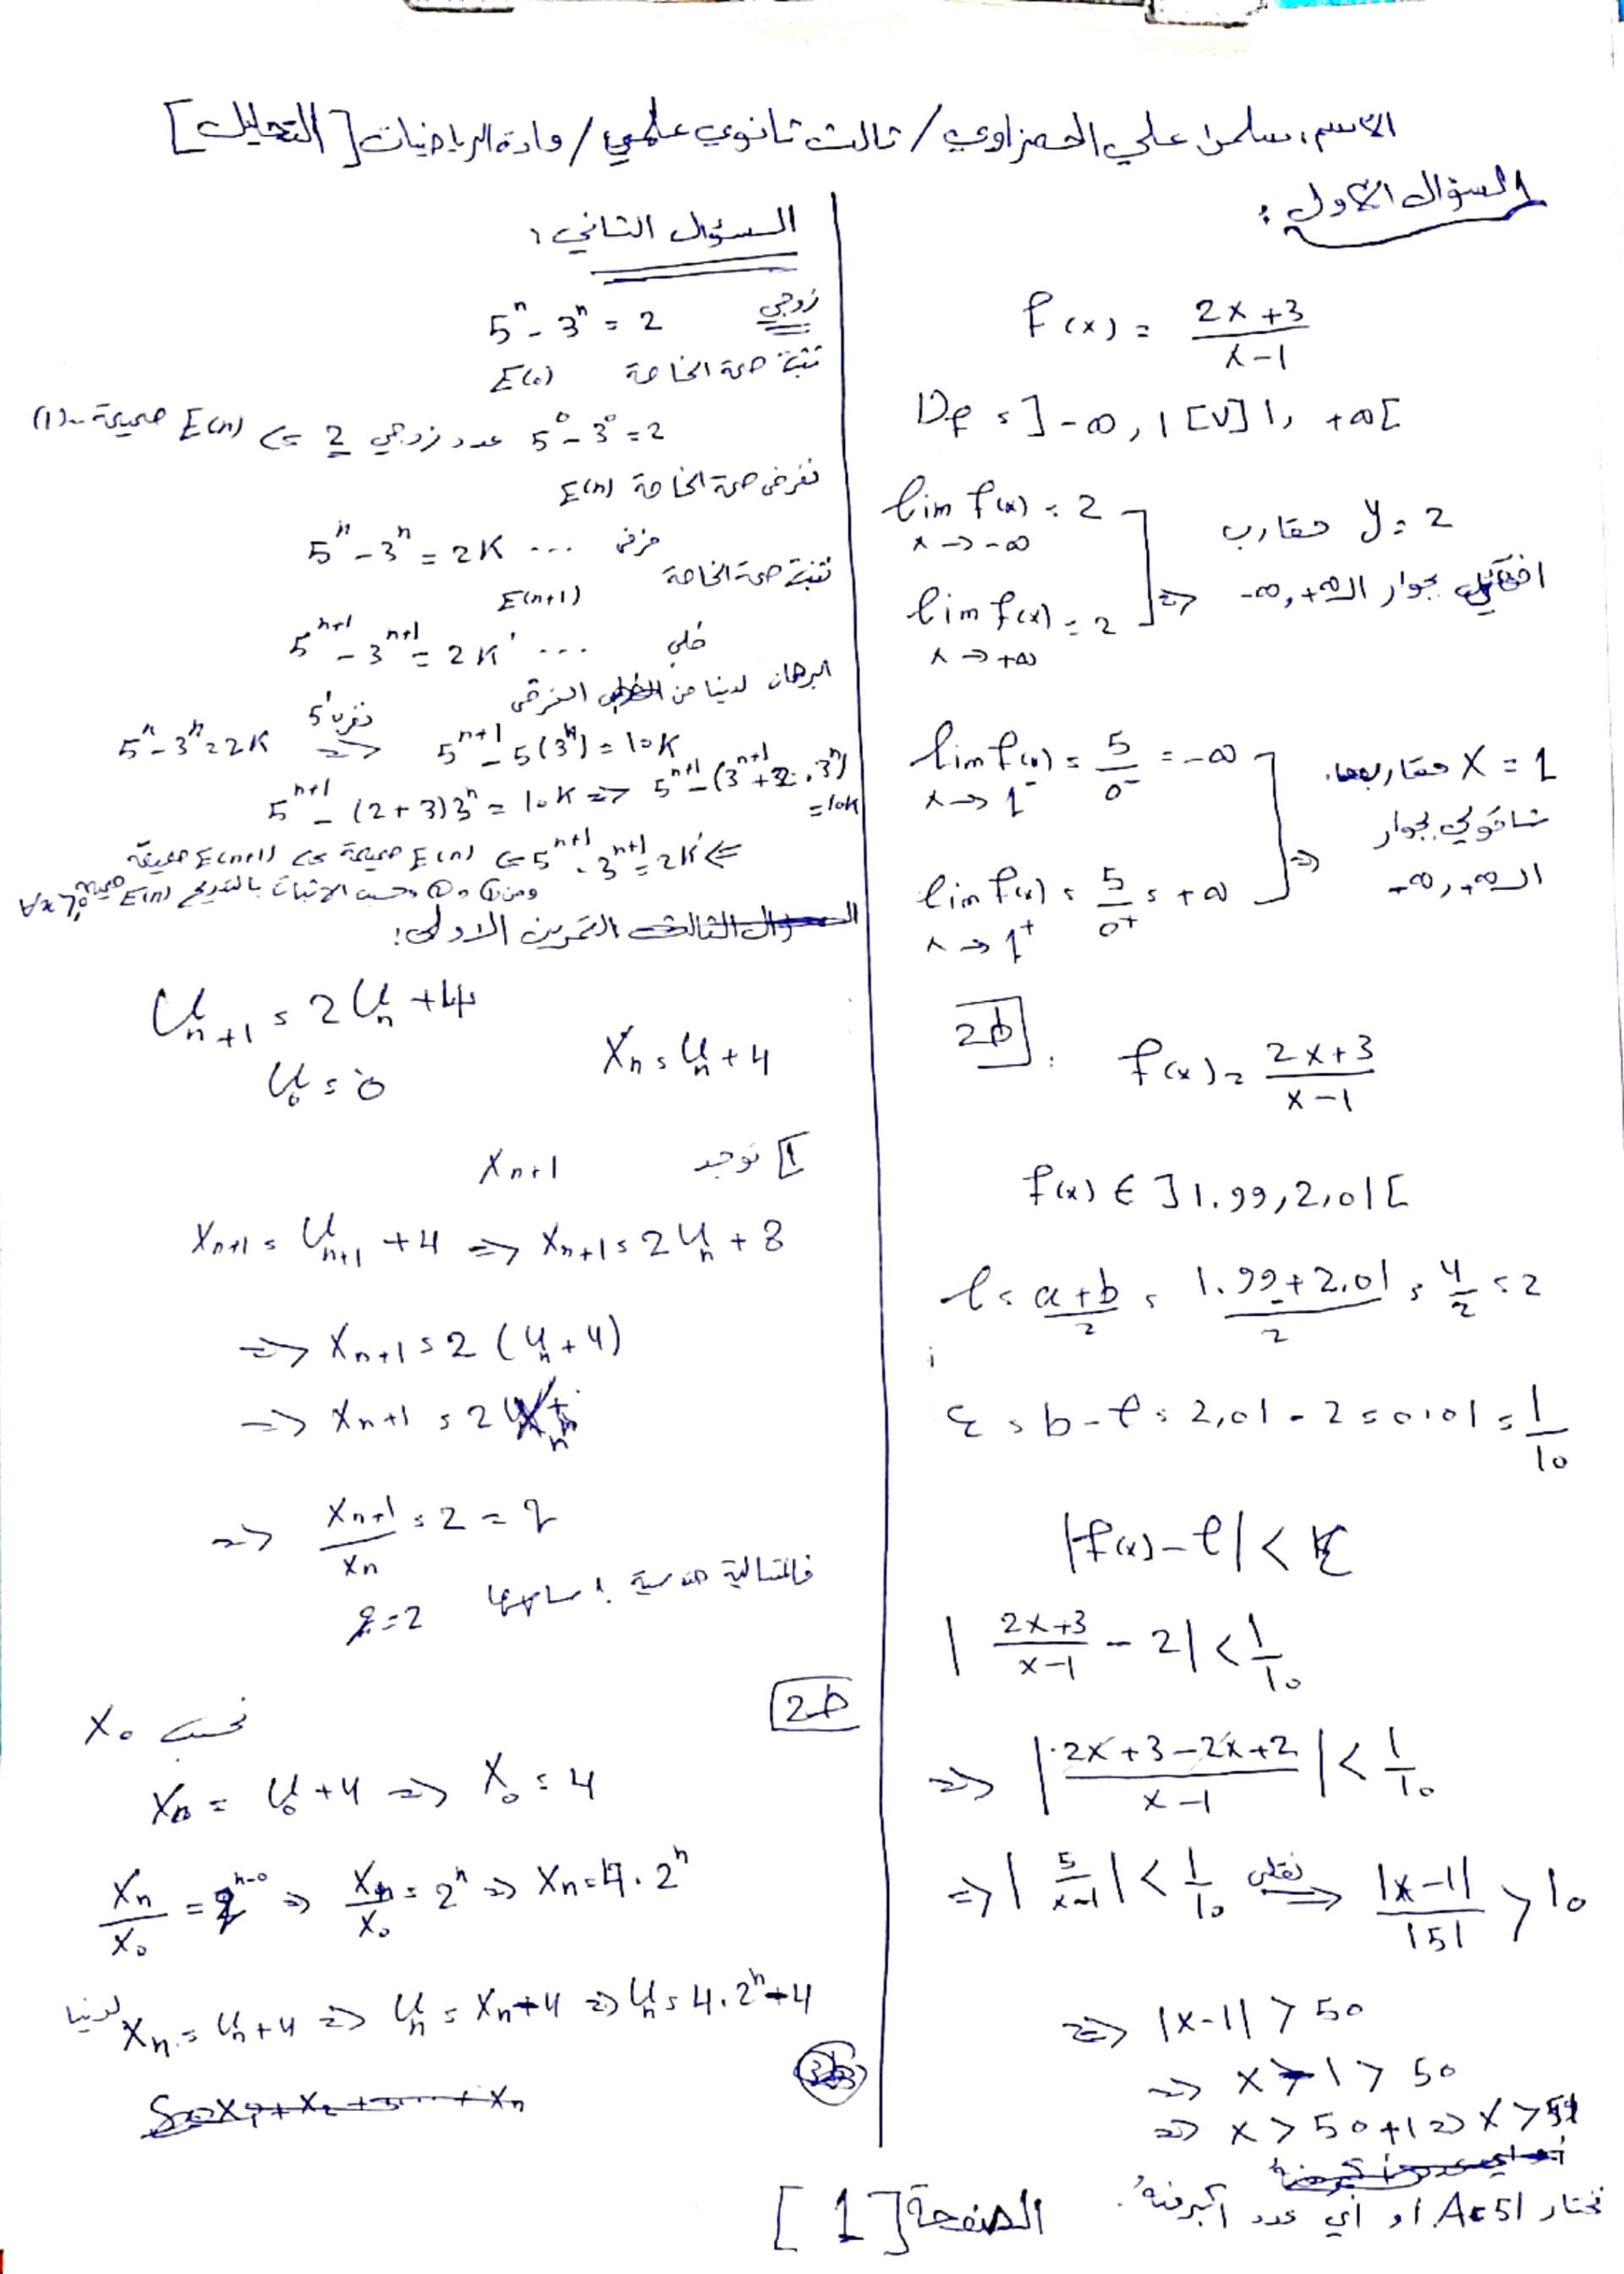 الاسم: سلمى علي الحمزاوي / ثالث ثانوي علمي / مادة الرياضيات [التحليل]
السؤال الاول:
f(x) = (2x+3)/(x-1)
Df = ]-∞, 1[ ∪ ]1, +∞[
lim f(x) = 2
x → -∞
lim f(x) = 2
x → +∞
⇒ y = 2 مقارب
افقي بجوار الـ +∞, -∞
lim f(x) = 5/0⁻ = -∞
x → 1⁻
lim f(x) = 5/0⁺ = +∞
x → 1⁺
⇒ x = 1 مقارب
شاقولي بجوار
الـ +∞, -∞
2) f(x) = (2x+3)/(x-1)
f(x) ∈ ]1.99, 2,01[
ℓ = (a+b)/2 = (1.99+2.01)/2 = 4/2 = 2
ε = b-ℓ = 2,01 - 2 = 0.01 = 1/10
|f(x)-ℓ| < ε
|(2x+3)/(x-1) - 2| < 1/10
⇒ |(2x+3-2x+2)/(x-1)| < 1/10
⇒ |5/(x-1)| < 1/10 نقلب ⇒ |x-1|/|5| > 10
⇒ |x-1| > 50
⇒ x-1 > 50
⇒ x > 50+1 ⇒ x > 51
نختار A=51 او أي عدد اكبر منه.
السؤال الثاني:
5ⁿ - 3ⁿ = 2 زوجي
نثبت صحة الخاصة E(0)
5⁰ - 3⁰ = 2 عدد زوجي 2 ⇒ E(n) صحيحة (1)
نفرض صحة الخاصة E(n)
5ⁿ - 3ⁿ = 2K ... فرض
نثبت صحة الخاصة
E(n+1)
5ⁿ⁺¹ - 3ⁿ⁺¹ = 2K' ... طلب
البرهان لدينا من الفرض
5ⁿ - 3ⁿ = 2K نضرب 5 ⇒ 5ⁿ⁺¹ - 5(3ⁿ) = 10K
5ⁿ⁺¹ - (2+3)3ⁿ = 10K ⇒ 5ⁿ⁺¹ - (3ⁿ⁺¹ + 2.3ⁿ) = 10K
⇒ 5ⁿ⁺¹ - 3ⁿ⁺¹ = 2K' ⇒ E(n) صحيحة ⇒ E(n+1) صحيحة
ومن ① و ② وحسب الاثبات بالتدريج E(n) صحيحة
التمرين الاول:
Uₙ₊₁ = 2Uₙ + 4
U₀ = 0 Xₙ = Uₙ + 4
1] نوجد Xₙ₊₁
Xₙ₊₁ = Uₙ₊₁ + 4 ⇒ Xₙ₊₁ = 2Uₙ + 8
⇒ Xₙ₊₁ = 2(Uₙ + 4)
⇒ Xₙ₊₁ = 2Xₙ
⇒ Xₙ₊₁/Xₙ = 2 = q
فالمتتالية هندسية اساسها q = 2
2) نحسب X₀
X₀ = U₀ + 4 ⇒ X₀ = 4
Xₙ/X₀ = qⁿ⁻⁰ ⇒ Xₙ/X₀ = 2ⁿ ⇒ Xₙ = 4.2ⁿ
لدينا Xₙ = Uₙ + 4 ⇒ Uₙ = Xₙ - 4 ⇒ Uₙ = 4.2ⁿ - 4
الصفحة [1]